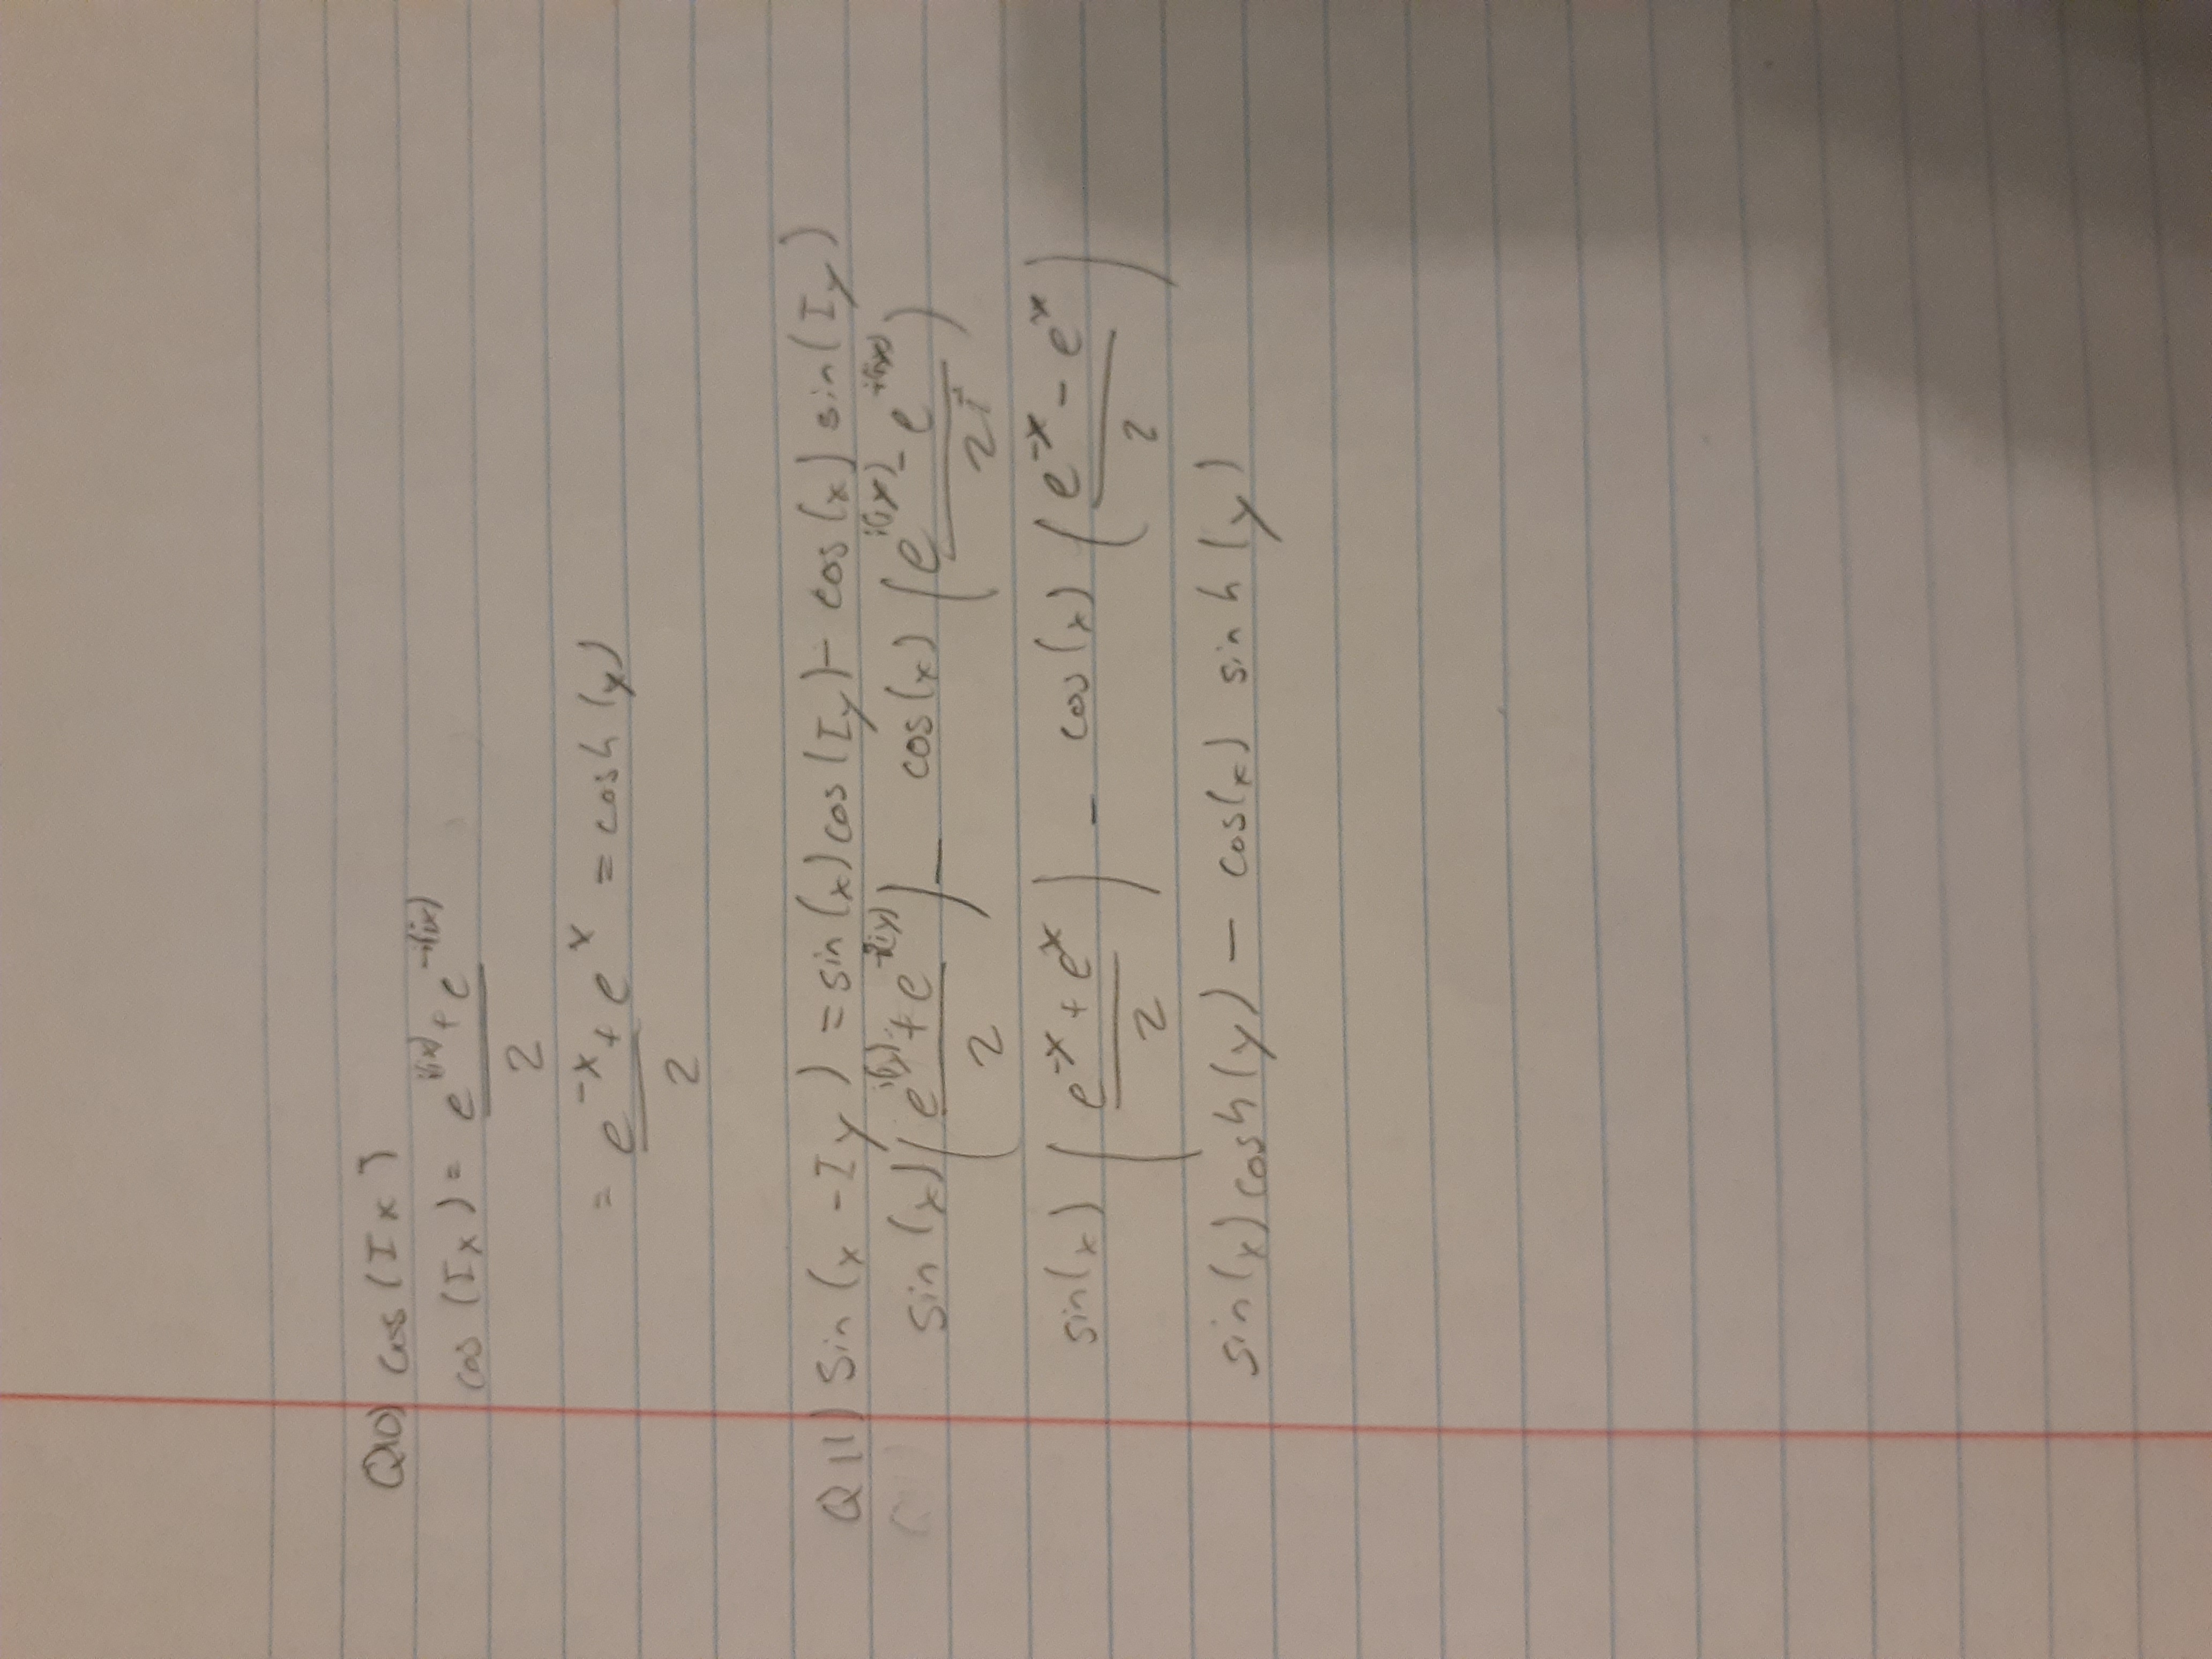 Q10) cos (Ix)
cos (Ix) = e^{i(ix)} + e^{-i(ix)} / 2
= e^{-x} + e^{x} / 2 = cosh (y)
Q11) Sin (x - Iy) = sin (x) cos (Iy) - cos (x) sin (Iy)
sin (x) (e^{i(iy)} + e^{-i(iy)} / 2) - cos (x) (e^{i(ix)} - e^{-i(ix)} / 2i)
sin(x) (e^{-x} + e^{x} / 2) - cos (x) (e^{-x} - e^{x} / 2)
sin(x) cosh (y) - cos(x) sinh (y)